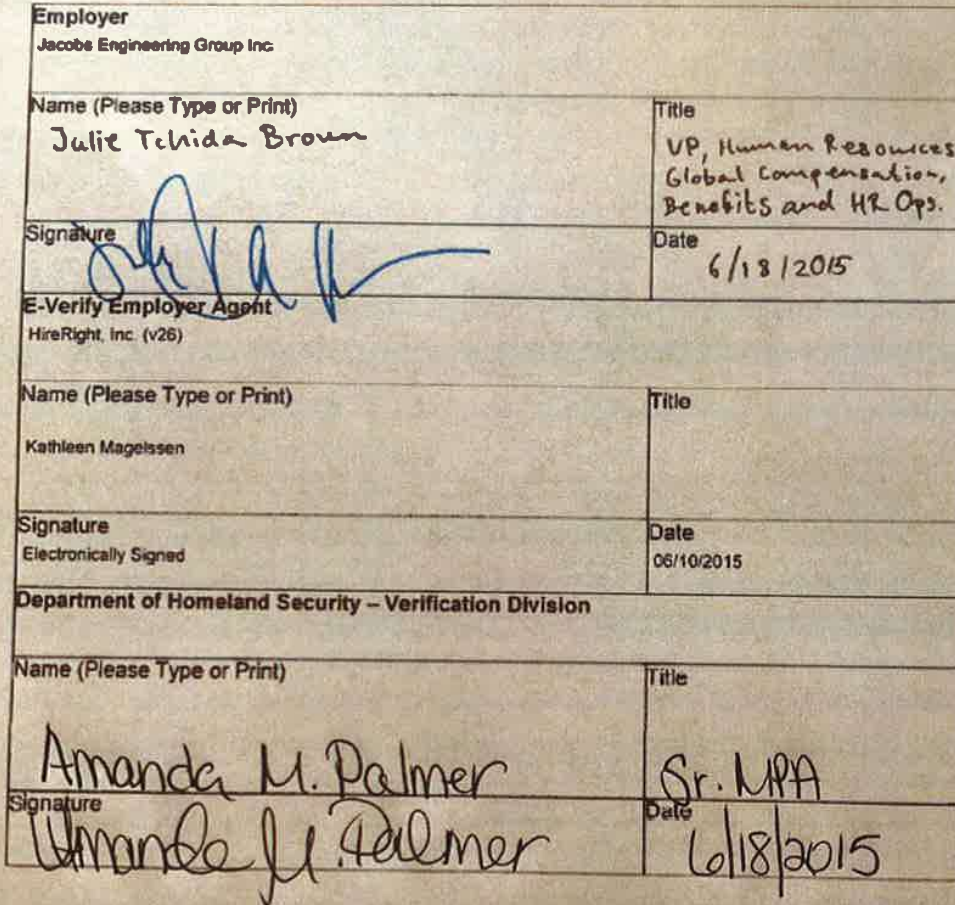 Employer
Jacobs Engineering Group Inc
Name (Please Type or Print)
Title
Julie Tchida Brown
VP, Human Resources
Global Compensation,
Benefits and HR Ops.
Signature
Date
6/18/2015
E-Verify Employer Agent
HireRight, Inc. (v26)
Name (Please Type or Print)
Title
Kathleen Magelssen
Signature
Date
Electronically Signed
06/10/2015
Department of Homeland Security – Verification Division
Name (Please Type or Print)
Title
Amanda M. Palmer
Sr. MPA
Signature
Date
Amanda M. Palmer
6/18/2015